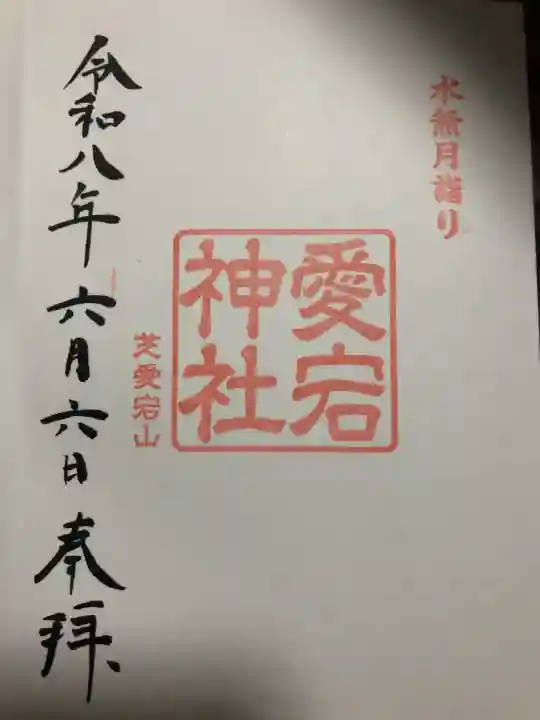 水無月詣り
愛宕
神社
芝愛宕山
令和八年六月六日奉拜